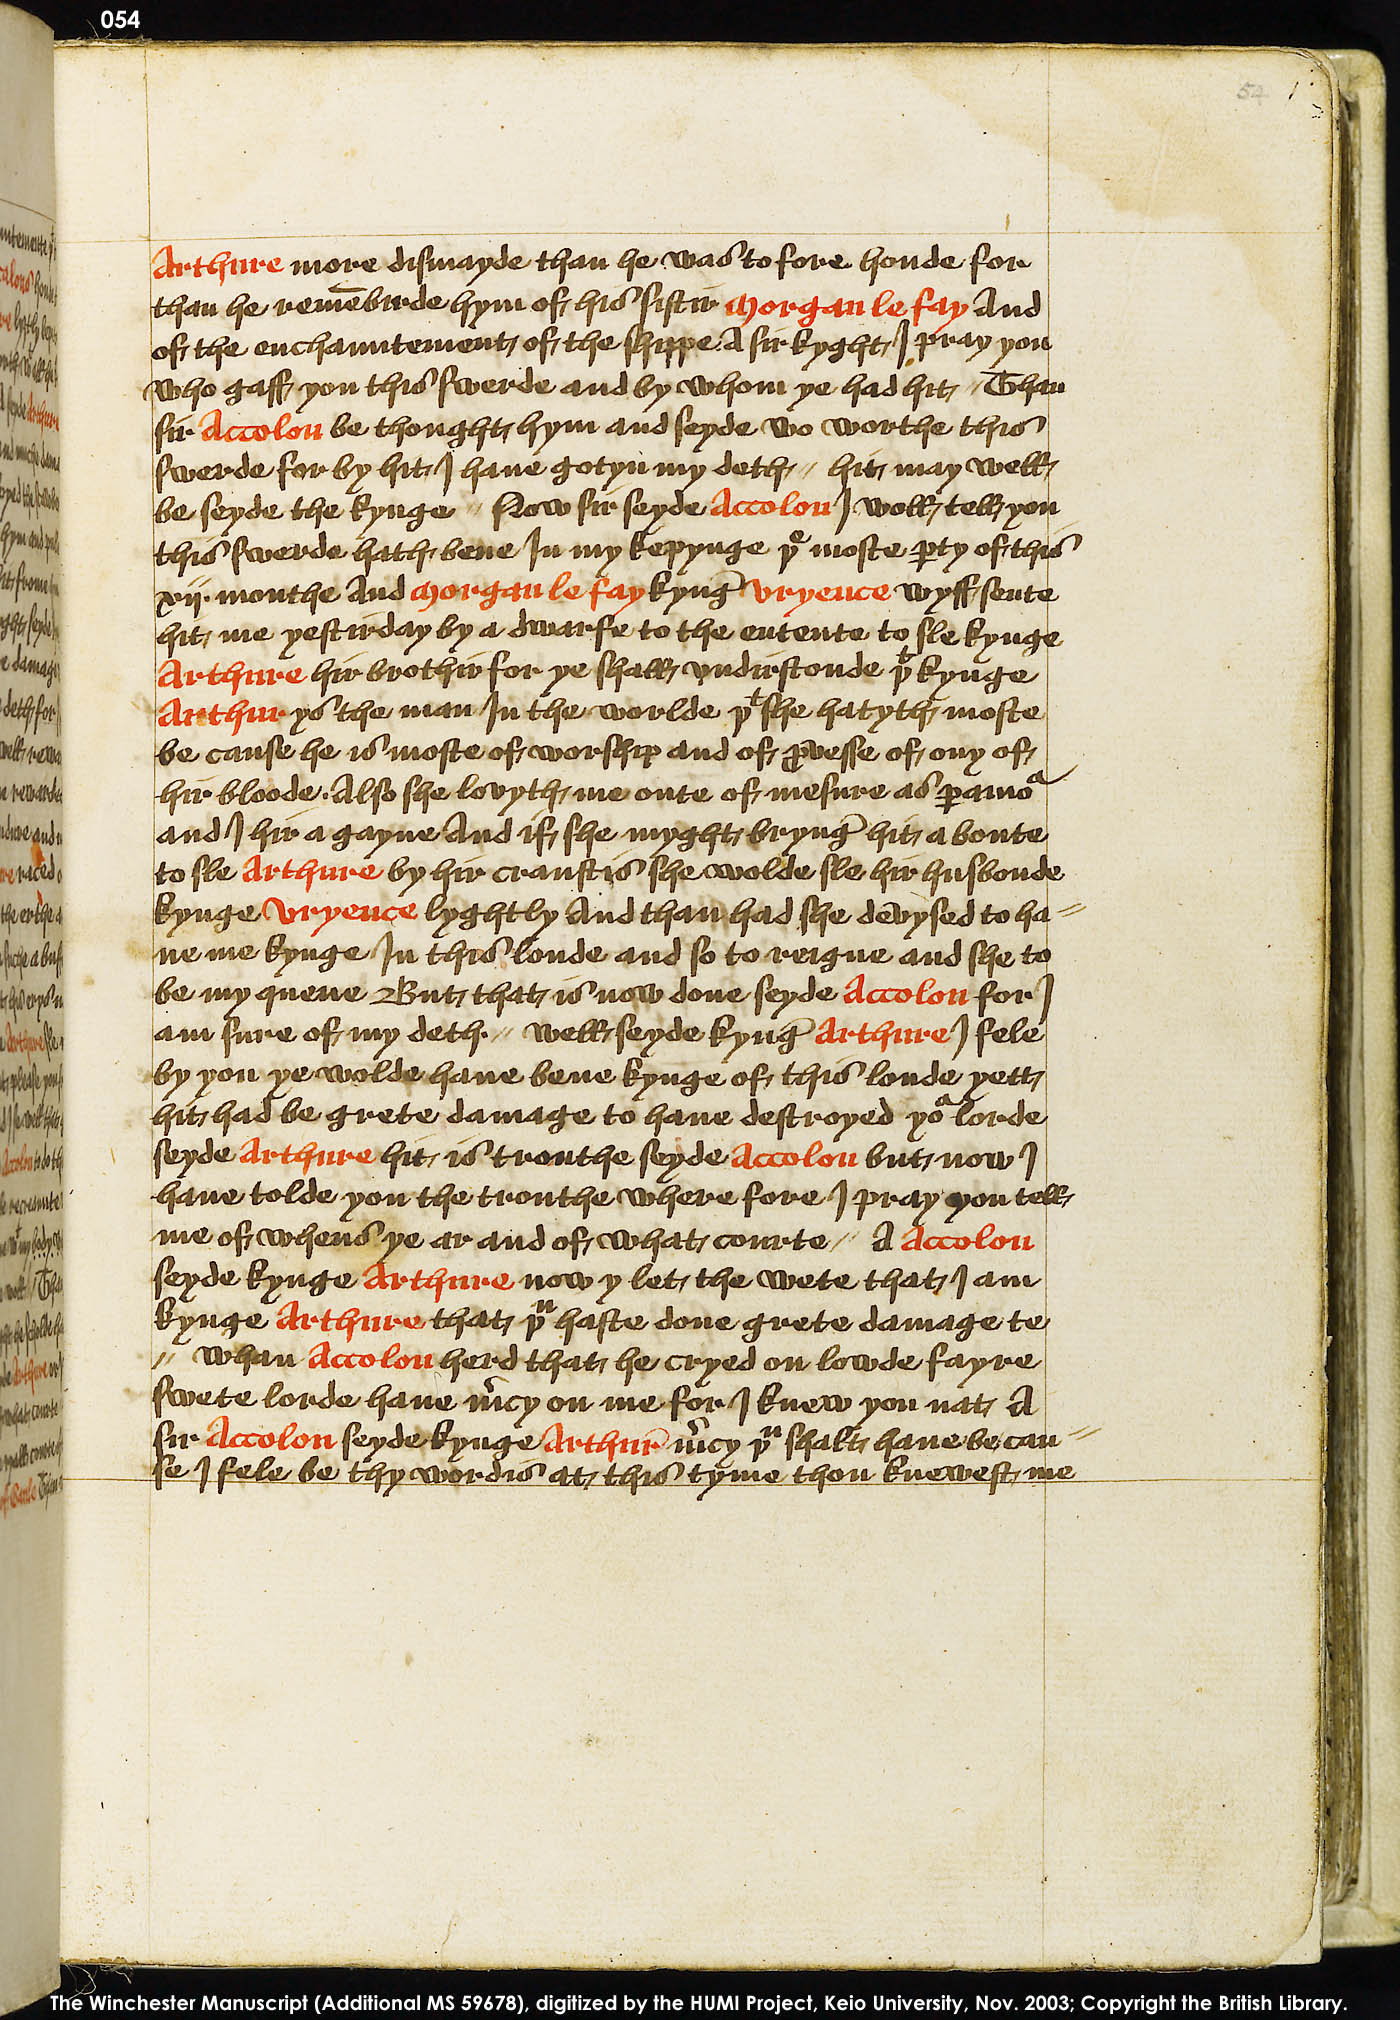 054
54
Arthure more dismayde than he was to fore honde for
than he remēbirde hym of his sistir Morgan le fay And
of the enchauntement of the shippe A sir kyght I pray you
who gaff you this swerde and by whom ye had hit // Than
sir Accolon be thought hym and seyde wo worthe this
swerde for by hit I haue gotyn my deth // hit may well
be seyde the kynge // Now sir seyde Accolon I woll tell you
this swerde hath bene In my kepynge þe moste ꝑty of this
xij monthe And Morgan le fay kyngē Vryence wyff sente
hit me yestirday by a dwarfe to the entente to sle kynge
Arthure hir brothir for ye shall vndirstonde þt kynge
Arthur ys the man In the worlde þt she hatyth moste
be cause he is moste of worship and of ꝓvesse of ony of
hir bloode. Also she lovyth me oute of mesure as ꝑamoa
and I hir a gayne And if she myght bryngē hit a boute
to sle Arthure by hir crauftis she wolde sle hir husbonde
kynge Vryence lyghtly And than had she devysed to ha=
ue me kynge In this londe and so to reigne and she to
be my quene But that is now done seyde Accolon for I
am sure of my deth // well seyde kyngē Arthure I fele
by you ye wolde haue bene kynge of this londe yett
hit had be grete damage to haue destroyed yoa lorde
seyde Arthure hit is trouthe seyde Accolon but now I
haue tolde you the trouthe where fore I pray you tell
me of whens ye ar and of what courte // A Accolon
seyde kynge Arthure now y let the wete that I am
kynge Arthure that þu haste done grete damage te
// whan Accolon herd that he cryed on lowde fayre
swete lorde haue m̄cy on me for I knew you nat A
sir Accolon seyde kynge Arthur̄ m̄cy þu shalt haue be cau=
se I fele be thy wordis at this tyme thou knewest me
The Winchester Manuscript (Additional MS 59678), digitized by the HUMI Project, Keio University, Nov. 2003; Copyright the British Library.